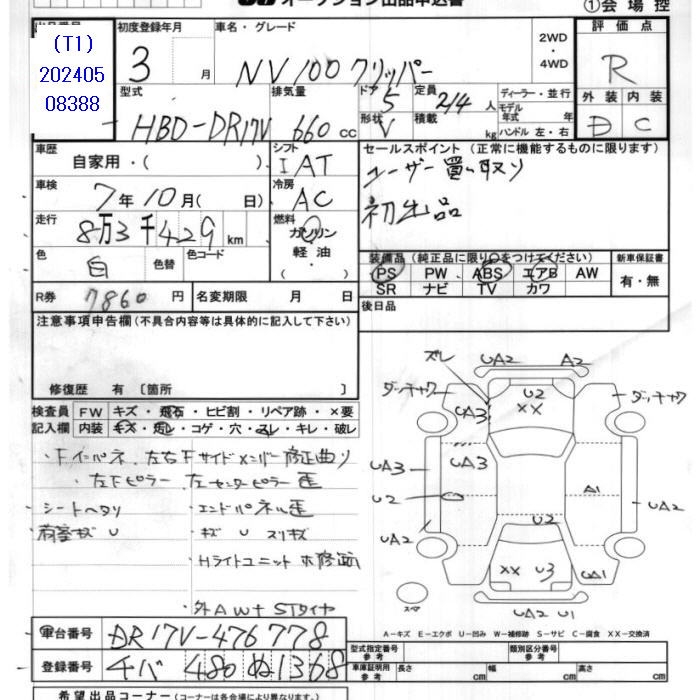 オークション出品申込書
①会場控
(T1)
202405
08388
初度登録年月
3 月
車名・グレード
NV100クリッパー
2WD
・
4WD
評価点
R
外装 内装
D C
型式
HBD-DR17V
排気量
660 cc
ドア 5
形状 V
定員 2/4 人
積載 kg
ディーラー・並行
モデル年式 年式
ハンドル 左・右
車歴
自家用・( )
シフト
I AT
セールスポイント (正常に機能するものに限ります)
ユーザー買い取り
初出品
車検
7年10月( 日)
冷房
AC
走行
8万3千429 km
燃料
ガソリン
軽油
・
色
白
色替
色コード
装備品 (純正品に限り○をつけてください)
PS PW ABS エアB AW
SR ナビ TV カワ
新車保証書
有・無
R券 7860 円
名変期限 月 日
後日品
注意事項申告欄 (不具合内容等は具体的に記入して下さい)
修復歴 有 〔箇所 〕
検査員 FW キズ・飛石・ヒビ割・リペア跡・×要
記入欄 内装 キズ・汚レ・コゲ・穴・スレ・キレ・破レ
・F インパネ、左右Fサイドメンバー修正曲り
左Fピラー 左センターピラー歪
・シートヘタリ
・エンドパネル歪
・荷室キズ U
・キズ U スリキズ
・Hライトユニット
・外AW+STタイヤ
ズレ
UA2
A2
ダッチャク
ダッチャク
U2
XX
UA3
UA3
UA3
U2
A1
UA2
UA2
U2
XX
U3
UA1
スペア
UA2 U1
A-キズ E-エクボ U-凹み W-補修跡 S-サビ C-腐食 XX-交換済
車台番号 DR17V-476778
登録番号 チバ 480 ぬ 1368
型式指定番号
参考
類別区分番号
参考
車庫証明用
参考
長さ cm
幅 cm
高さ cm
希望出品コーナー (コーナーは各会場により異なります。)